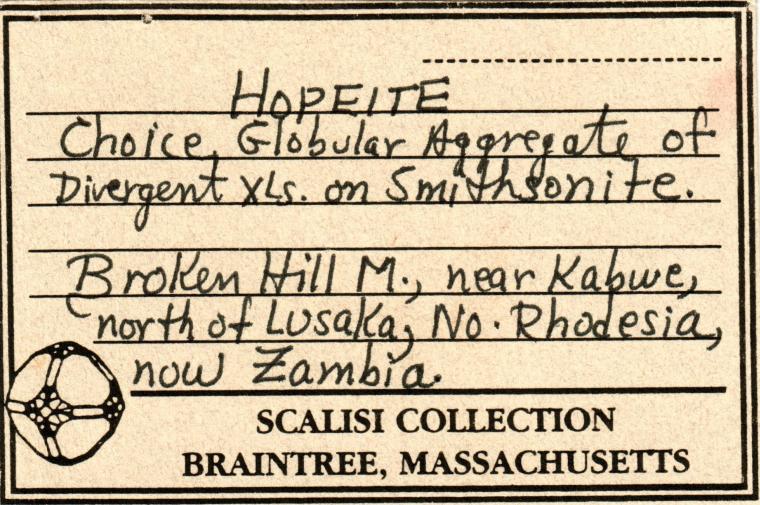 HOPEITE
Choice, Globular Aggregate of
Divergent XLs. on Smithsonite.
Broken Hill M., near Kabwe,
north of Lusaka, No. Rhodesia,
now Zambia.
SCALISI COLLECTION
BRAINTREE, MASSACHUSETTS